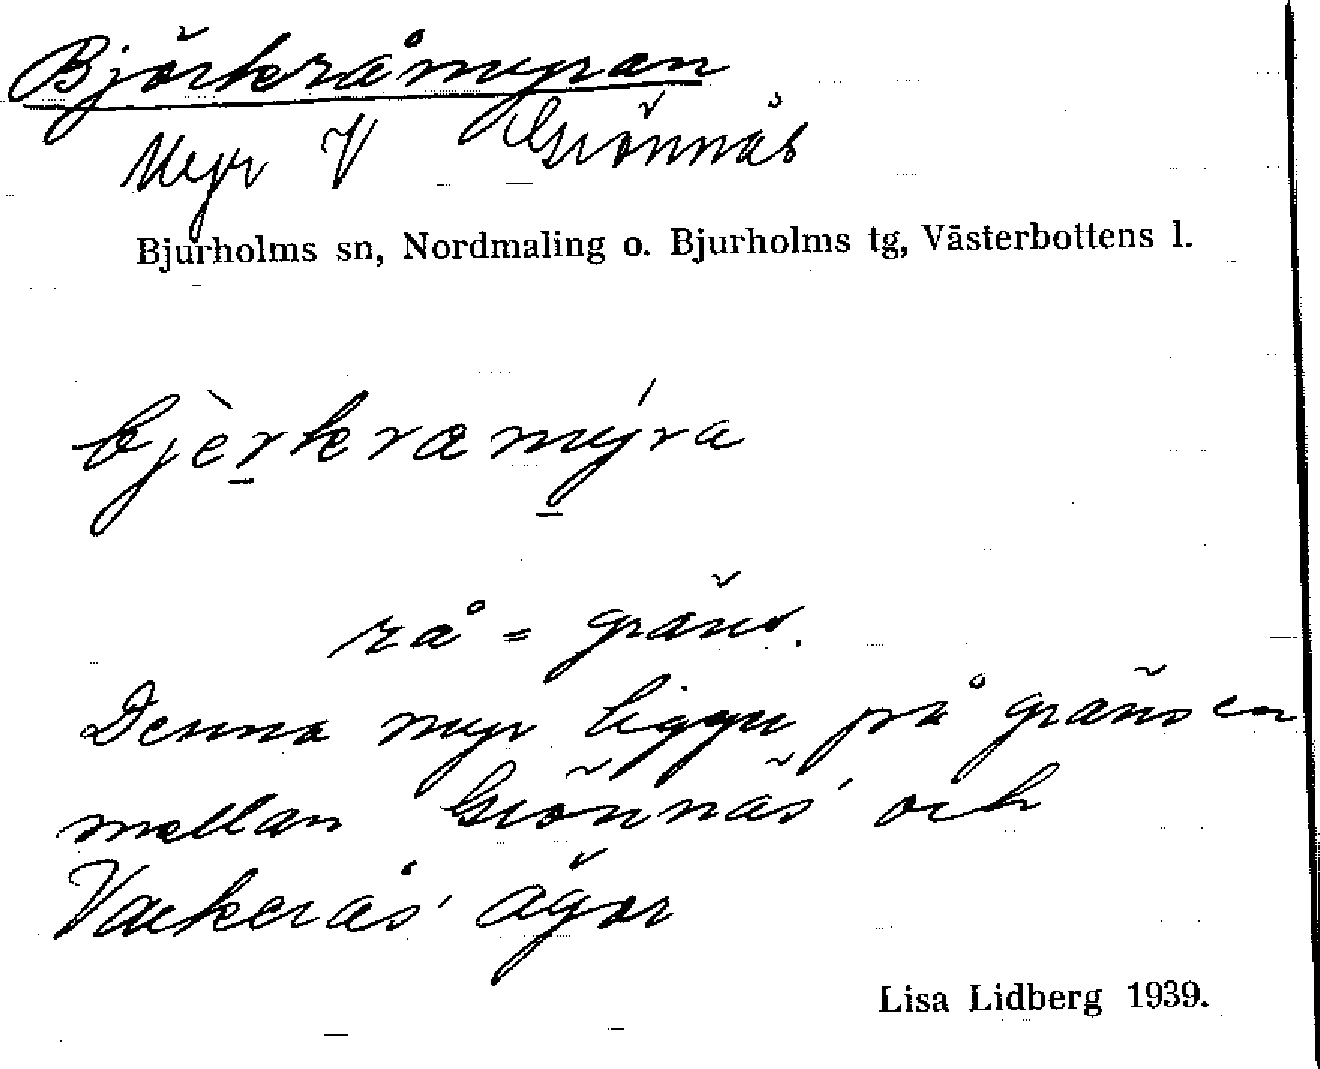 Björkråmyran
Myr V Grönnäs
Bjurholms sn, Nordmaling o. Bjurholms tg, Västerbottens l.
bjèrkramýra
rå = gräns.
Denna myr ligger på gränsen
mellan Grönnäs' och
Vackerås' ägor
Lisa Lidberg 1939.